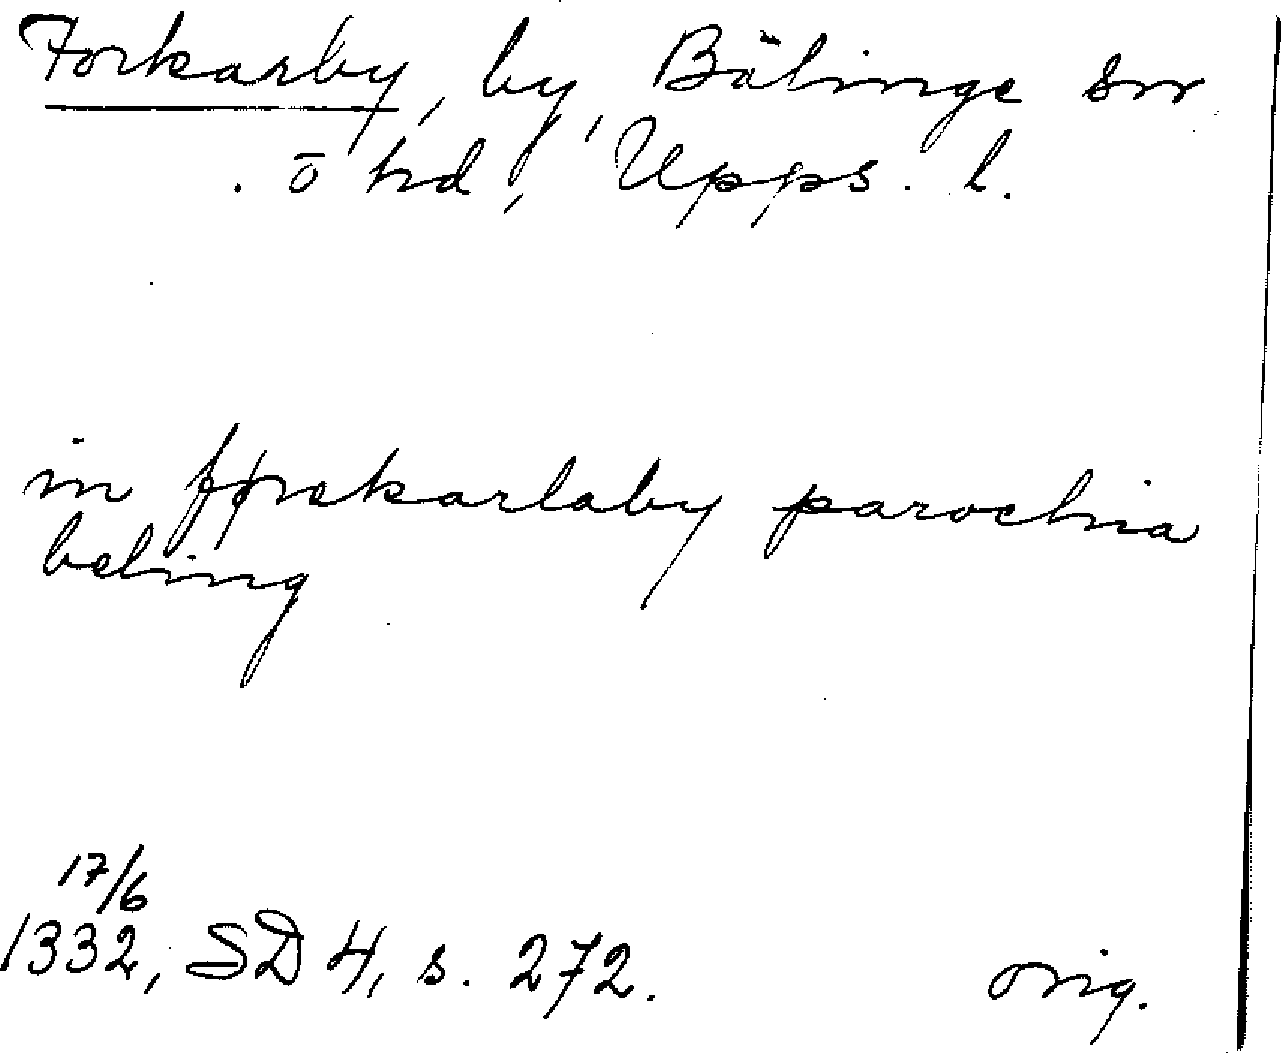 Forkarby, by, Bälinge sn
. ō hd, Upps. l.
in førekarlaby parochia
beling
17/6
1332, SD 4, s. 272.
orig.